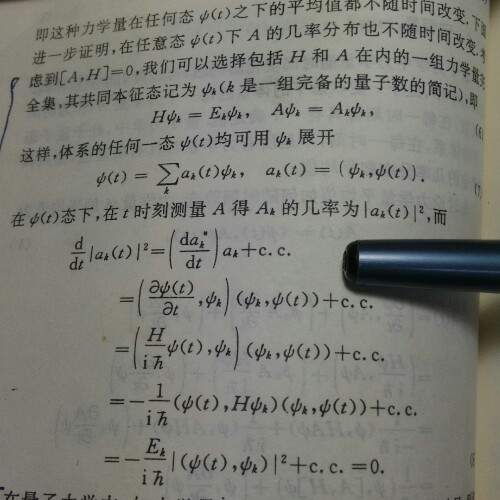 即这种力学量在任何态 ψ(t)之下的平均值都不随时间改变.下
进一步证明,在任意态 ψ(t)下 A 的几率分布也不随时间改变.考
虑到[A,H]=0,我们可以选择包括 H 和 A 在内的一组力学量完
全集,其共同本征态记为 ψₖ(k 是一组完备的量子数的简记),即
Hψₖ = Eₖψₖ, Aψₖ = Aₖψₖ, (6)
这样,体系的任何一态 ψ(t)均可用 ψₖ 展开
ψ(t) = ∑ₖ aₖ(t)ψₖ, aₖ(t) = (ψₖ,ψ(t)). (7)
在 ψ(t)态下,在 t 时刻测量 A 得 Aₖ 的几率为|aₖ(t)|²,而
d/dt |aₖ(t)|² = (daₖ*/dt) aₖ + c.c.
= (∂ψ(t)/∂t, ψₖ) (ψₖ,ψ(t)) + c.c.
= (H/iħ ψ(t), ψₖ) (ψₖ,ψ(t)) + c.c.
= − 1/iħ (ψ(t),Hψₖ)(ψₖ,ψ(t)) + c.c.
= − Eₖ/iħ |(ψ(t),ψₖ)|² + c.c. = 0.